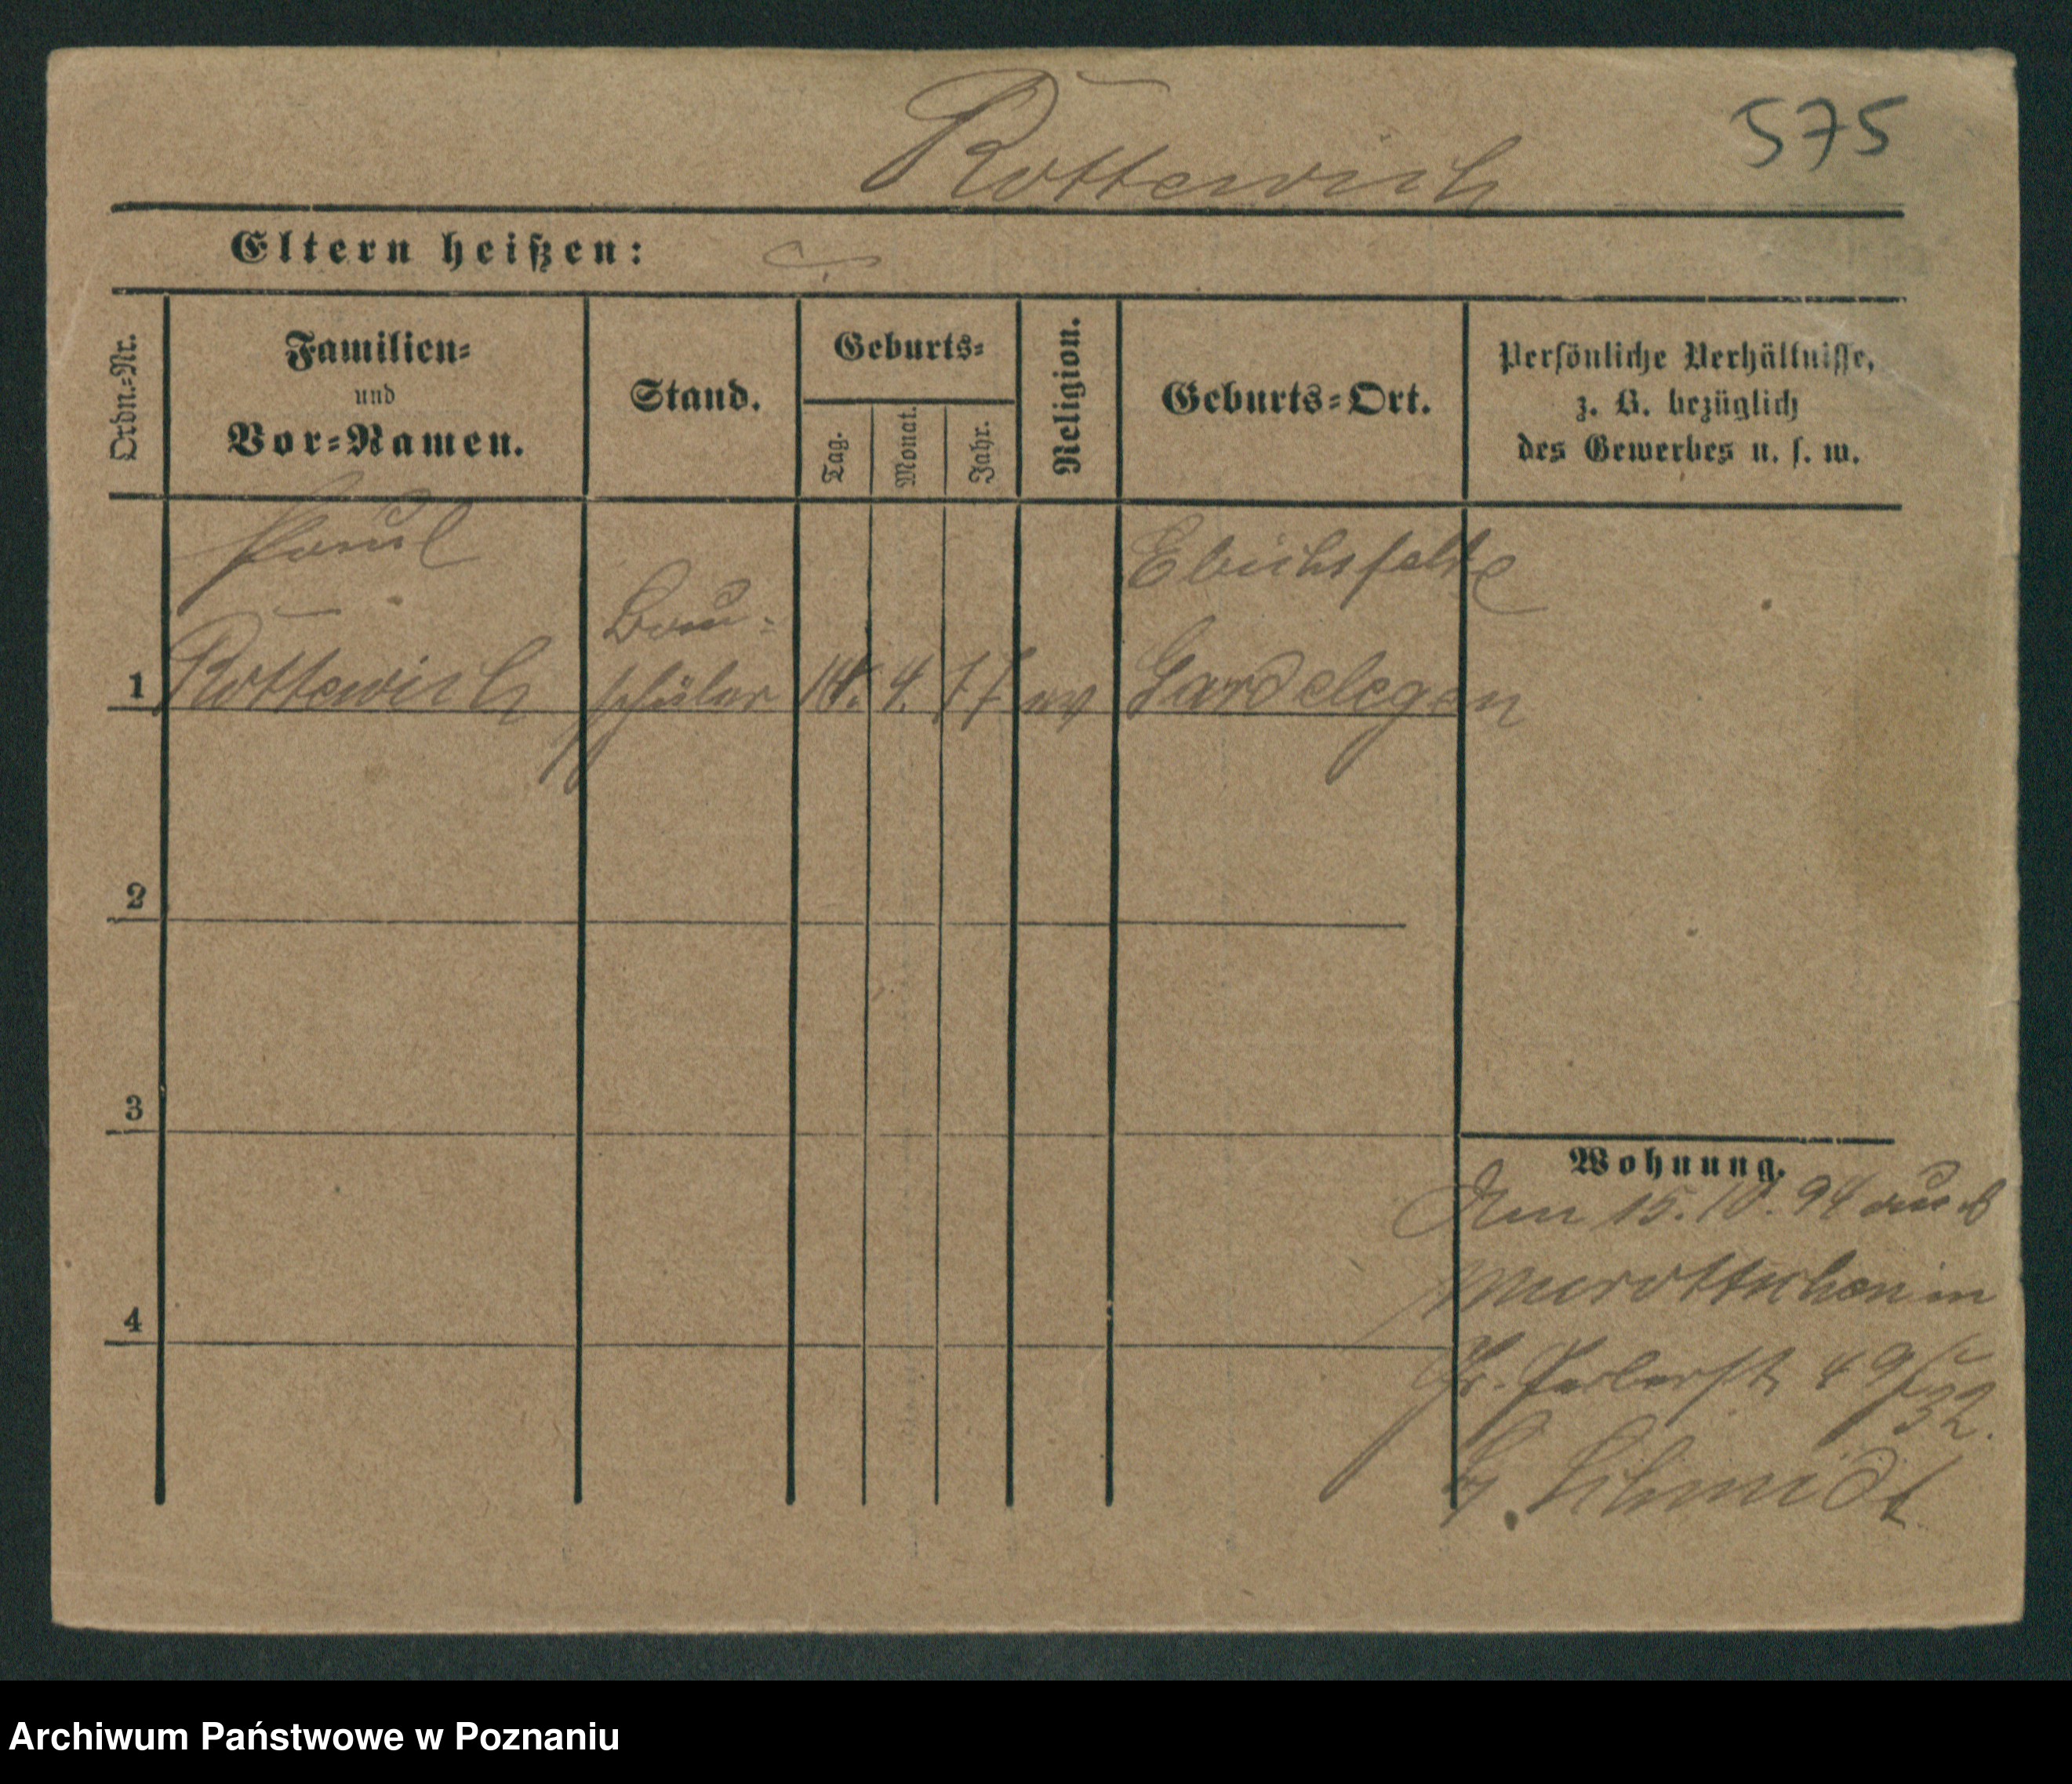 Rottewisch
575
Eltern heißen:
Ordn.=Nr.
Familien=
und
Vor=Namen.
Stand.
Geburts=
Tag.
Monat.
Jahr.
Religion.
Geburts=Ort.
Persönliche Verhältnisse,
z. B. bezüglich
des Gewerbes u. s. w.
Paul
Bau=
1
schüler
14. 4. 77
ev
Gardelegen
2
3
4
Wohnung.
Am 15. 10. 94 aus
in
49
32.
Schmidt
Archiwum Państwowe w Poznaniu